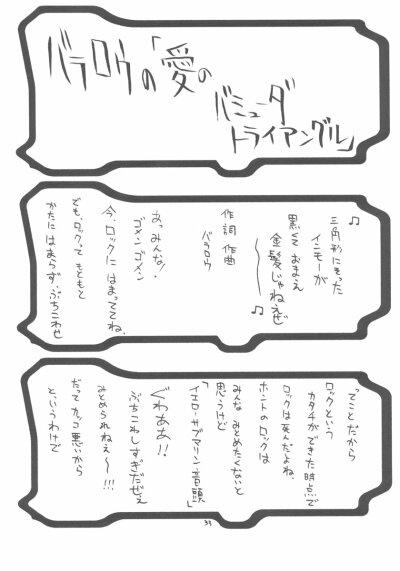 バラロウの「愛の
バミューダ
トライアングル」
♫三角形にそった
インモーが
黒くて おまえ
金髪じゃねえぜ
〜〜♫
作詞 作曲
バラロウ
あっみんな!
ゴメンゴメン
今、ロックに はまっててね、
でも、ロックって もともと
かたに はまらず、ぶちこわせ
ってことだから
ロックという
カタチができた時点で
ロックは死んだよね、
ホントのロックは
みんな みとめたくないと
思うけど
「イエローサブマリン音頭」
ぐわぁあ!!
ぶちこわしすぎだぜぇ
みとめられねぇ〜〜!!!
だって カッコ悪いから
と、いうわけで
39